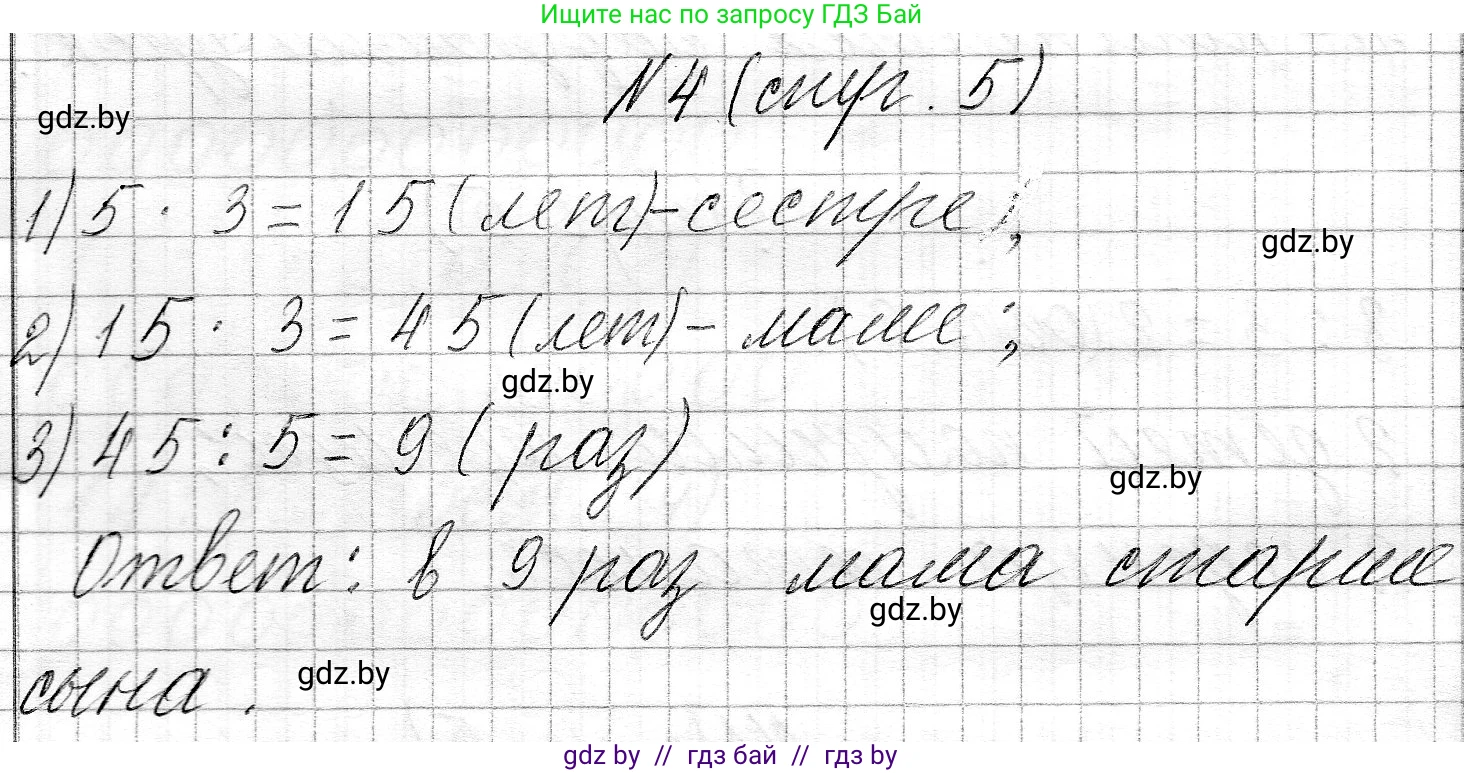 Ищите нас по запросу ГДЗ Бай
N4 (стр. 5)
gdz.by
1) 5 · 3 = 15 (лет) - сестре;
gdz.by
2) 15 · 3 = 45 (лет) - маме;
gdz.by
3) 45 : 5 = 9 (раз)
gdz.by
Ответ: в 9 раз мама старше
gdz.by
сына.
gdz.by
gdz by // gdz бай // гдз by